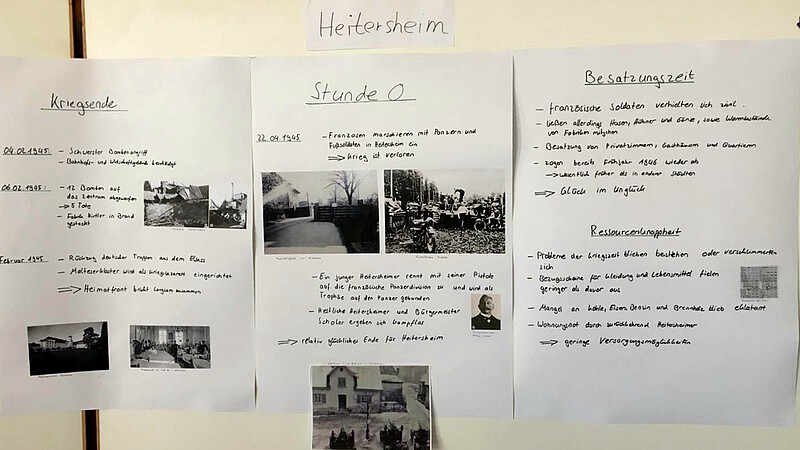 Heitersheim
Kriegsende
04.02.1945: - Schwerster Bombenangriff
- Bahnhofs- und Wirtschaftsgebäude beschädigt
06.02.1945: - 12 Bomben auf
das Zentrum abgeworfen
→ 5 Tote
- Fabrik in Brand
gesteckt
Februar 1945 - Rückzug deutscher Truppen aus dem Elsass
- Malteserkloster wird als Kriegslazarett eingerichtet
⇒ Heimatfront bricht langsam zusammen
Stunde 0
22.04.1945: - Franzosen marschieren mit Panzern und
Fußsoldaten in Heitersheim ein
⇒ Krieg ist verloren
- Ein junger Heitersheimer rennt mit seiner Pistole
auf die französische Panzerdivision zu und wird als
Trophäe auf den Panzer gebunden
- Restliche Heitersheimer und Bürgermeister
Scholer ergeben sich kampflos
⇒ relativ glückliches Ende für Heitersheim
Besatzungszeit
- französische Soldaten verhielten sich zivil.
- ließen allerdings Hasen, Hühner und Gänse, sowie
von Fabriken mitgehen
- Besatzung von Privatzimmern, Gasthäusern und Quartieren
- zogen bereits Frühjahr 1946 wieder ab
→ wesentlich früher als in anderen Städten
⇒ Glück im Unglück
Ressourcenknappheit
- Probleme der Kriegszeit blieben bestehen oder verschlimmerten
sich
- Bezugsscheine für Kleidung und Lebensmittel fielen
geringer als davor aus
- Mangel an Kohle, Eisen, Benzin und Brennholz blieb eklatant
- Wohnungsnot durch zurückkehrend Heitersheimer
⇒ geringe Versorgungsmöglichkeiten